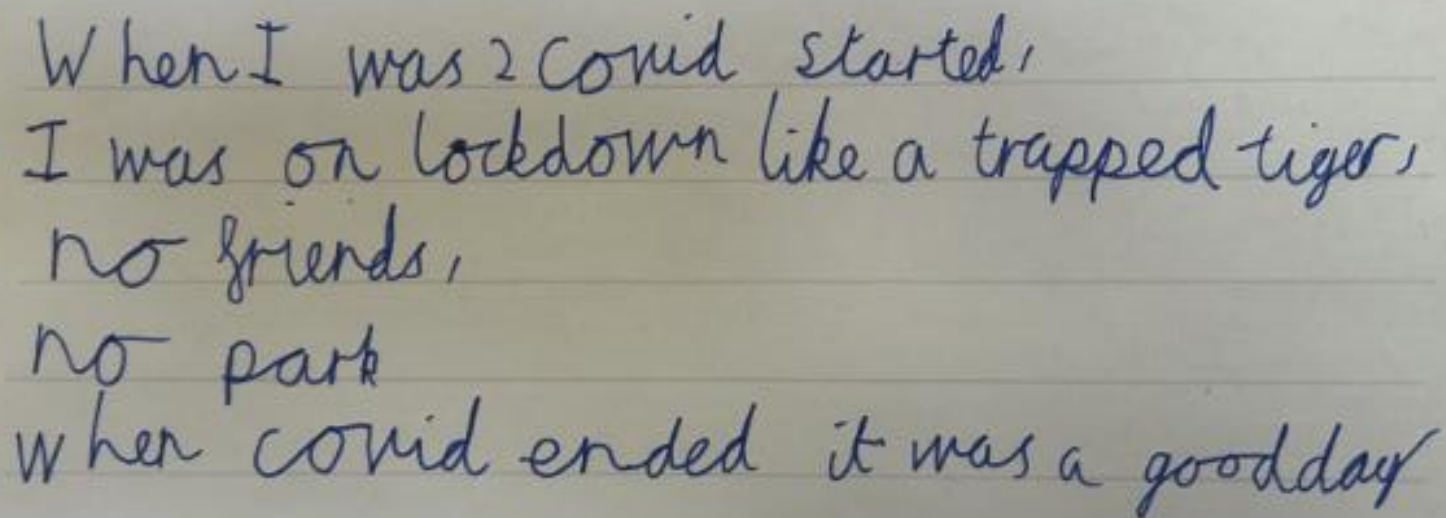 When I was 2 Covid started,
I was on lockdown like a trapped tiger,
no friends,
no park
when covid ended it was a good day